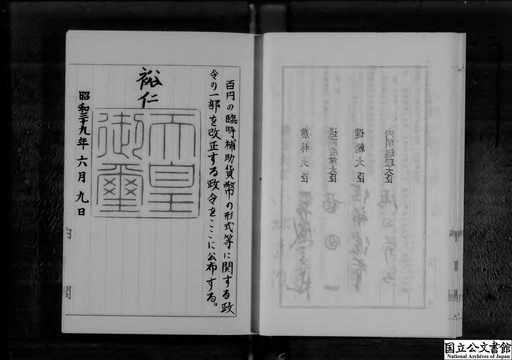 内閣総理大臣
運輸大臣
通商産業大臣
農林大臣
百円の臨時補助貨幣の形式等に関する政
令の一部を改正する政令をここに公布する。
裕仁
天皇
御璽
昭和三十九年六月九日
国立公文書館
National Archives of Japan